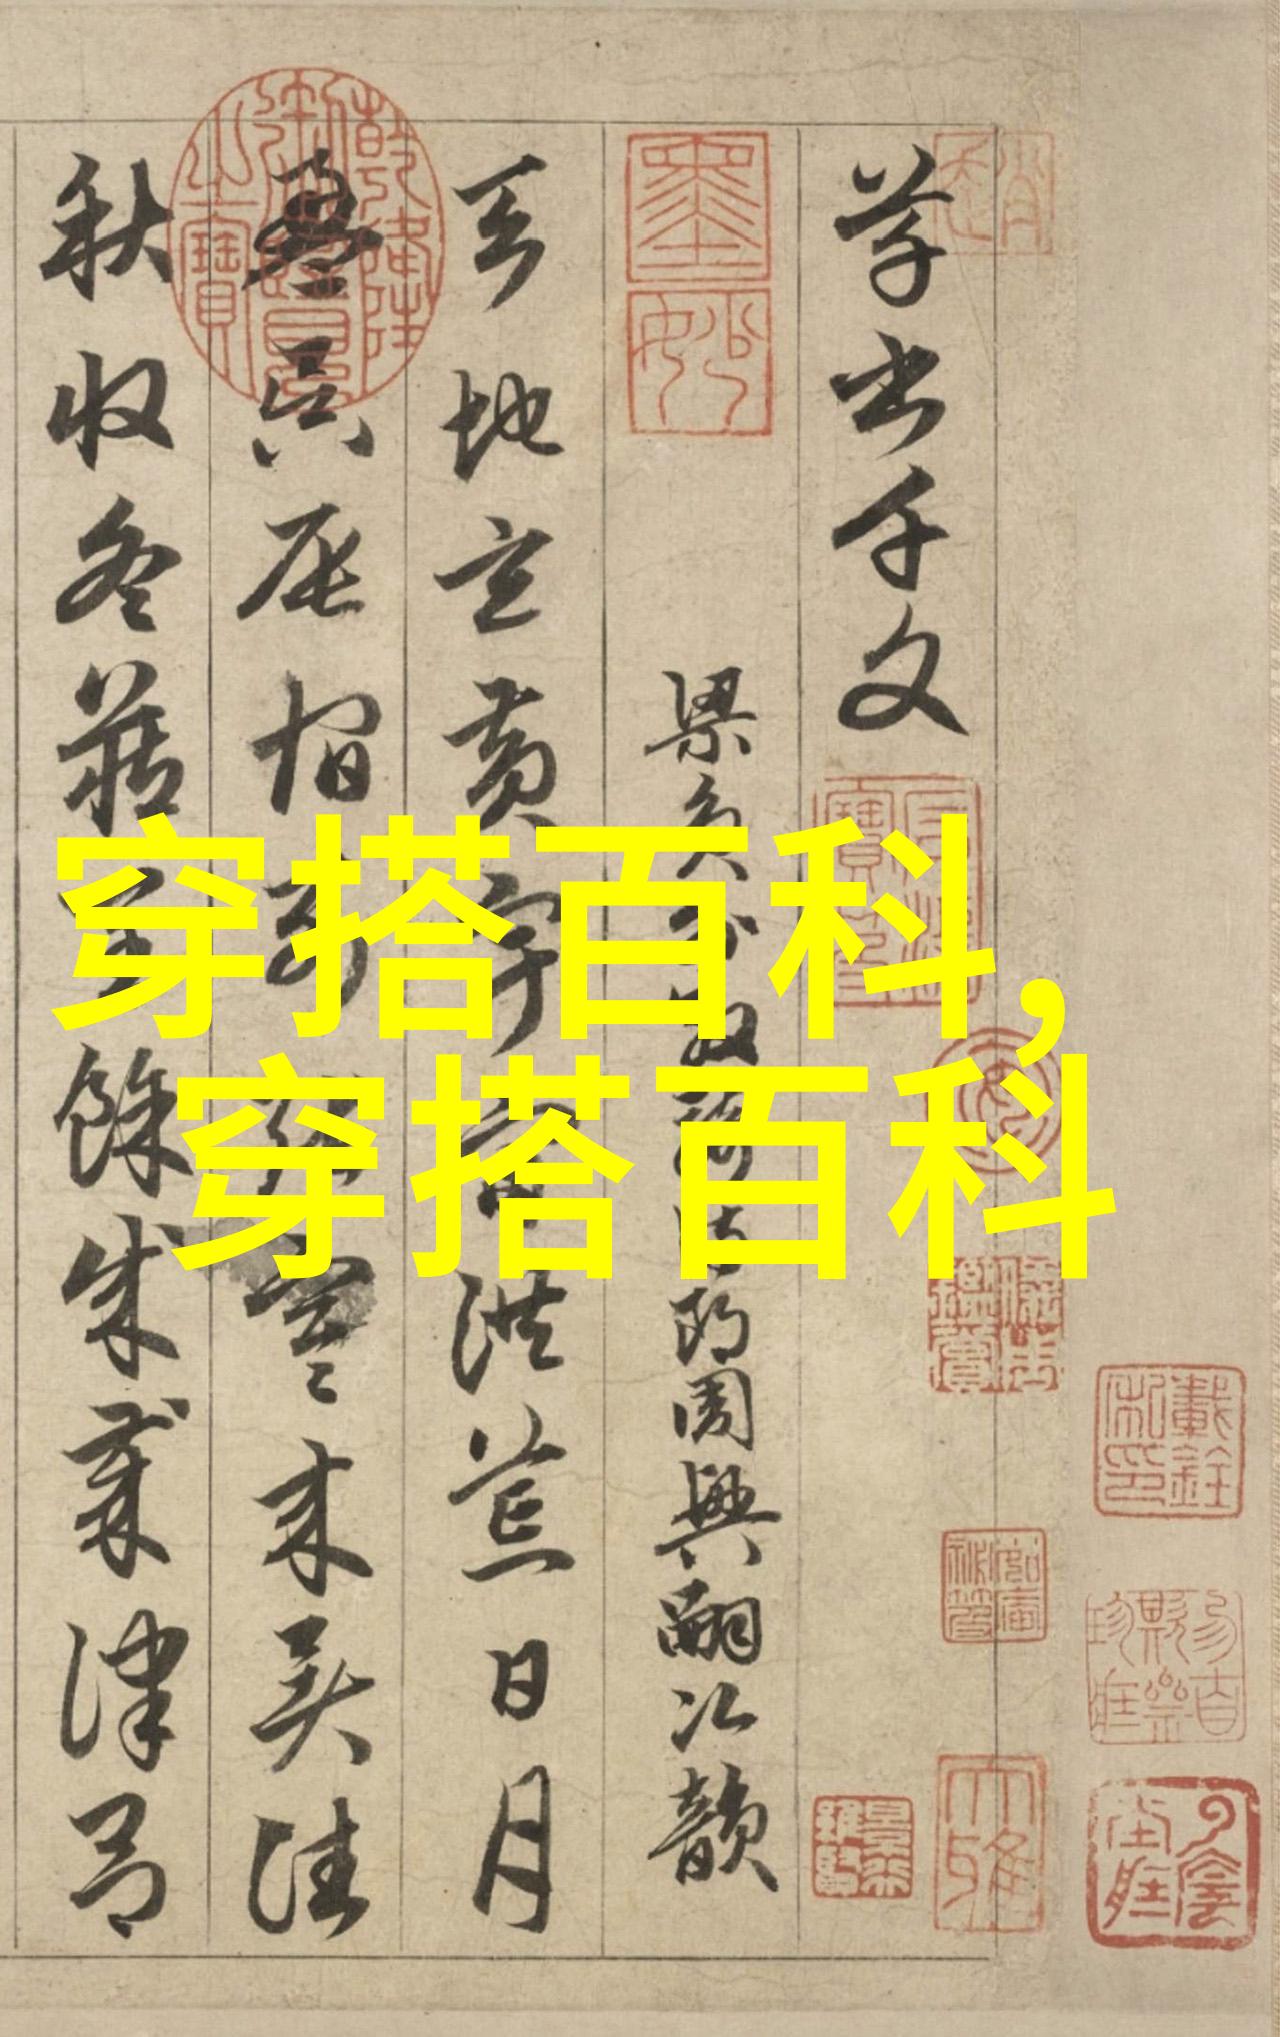 草书千文
梁员外散骑侍郎周兴嗣次韵
天地玄黄宇宙洪荒日月
盈昃辰宿列张寒来暑往
秋收冬藏闰馀成岁律吕
墨妙
乾隆御览之宝
大雅
穿搭百科,
穿搭百科